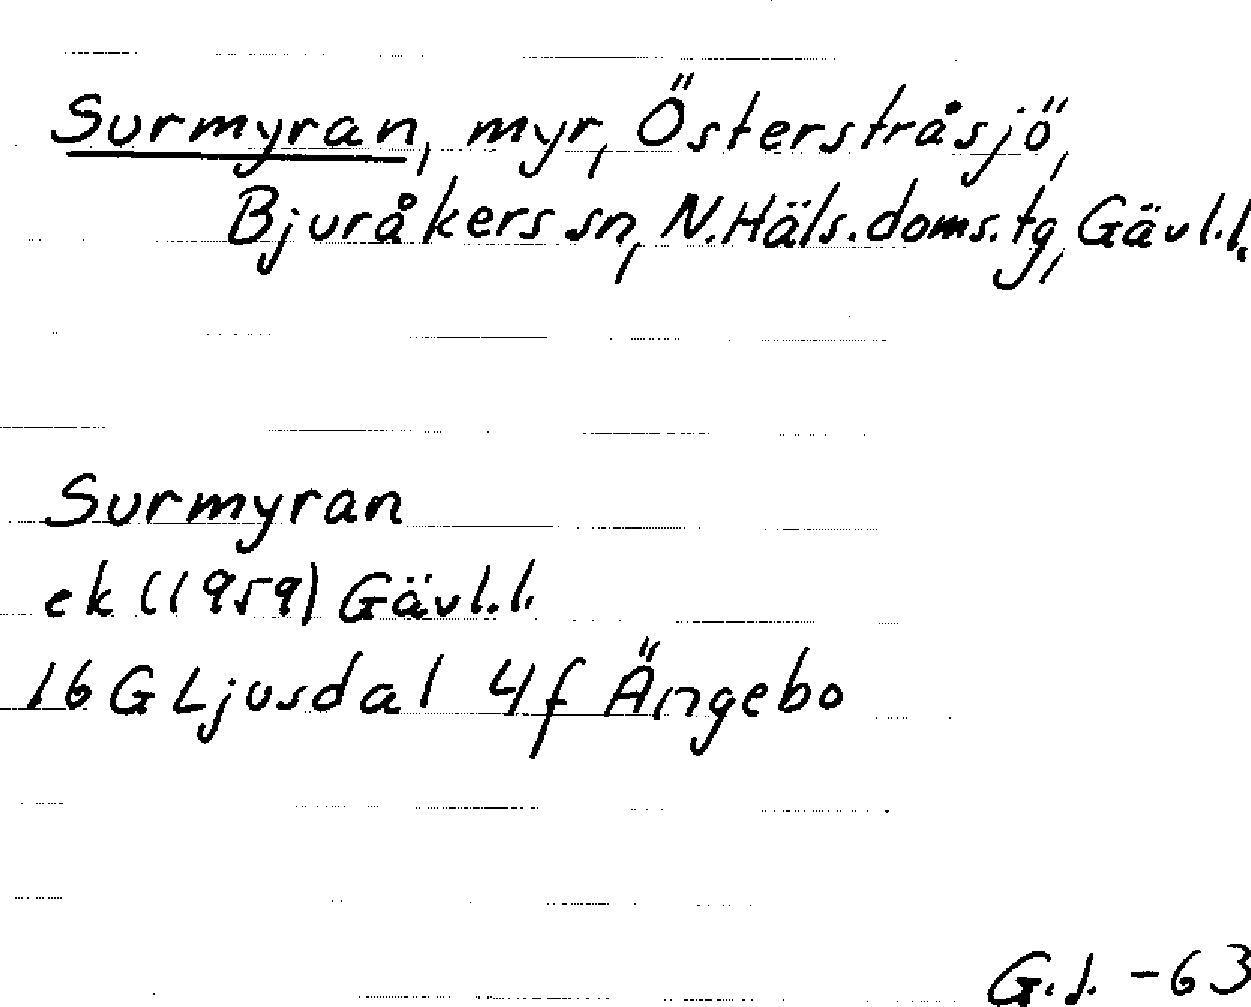 Surmyran, myr, Österstråsjö,
Bjuråkers sn, N.Häls.doms.tg, Gävl.l.
Surmyran
ek (1959) Gävl.l.
16 G Ljusdal 4f Ängebo
G.J. -63